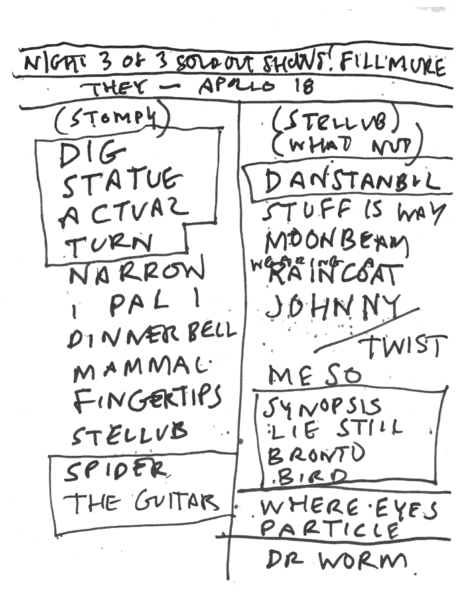 NIGHT 3 OF 3 SOLD OUT SHOWS! FILLMORE
THEY — APOLLO 18
(STOMPY)
DIG
STATUE
ACTUAL
TURN
NARROW
I PAL I
DINNER BELL
MAMMAL
FINGERTIPS
STELLUB
SPIDER
THE GUITAR
(STELLUB)
(WHAT NUT)
DANSTANBUL
STUFF IS WAY
MOONBEAM
WEARING A
RAINCOAT
JOHNNY
TWIST
MESO
SYNOPSIS
LIE STILL
BRONTO
BIRD
WHERE EYES
PARTICLE
DR WORM